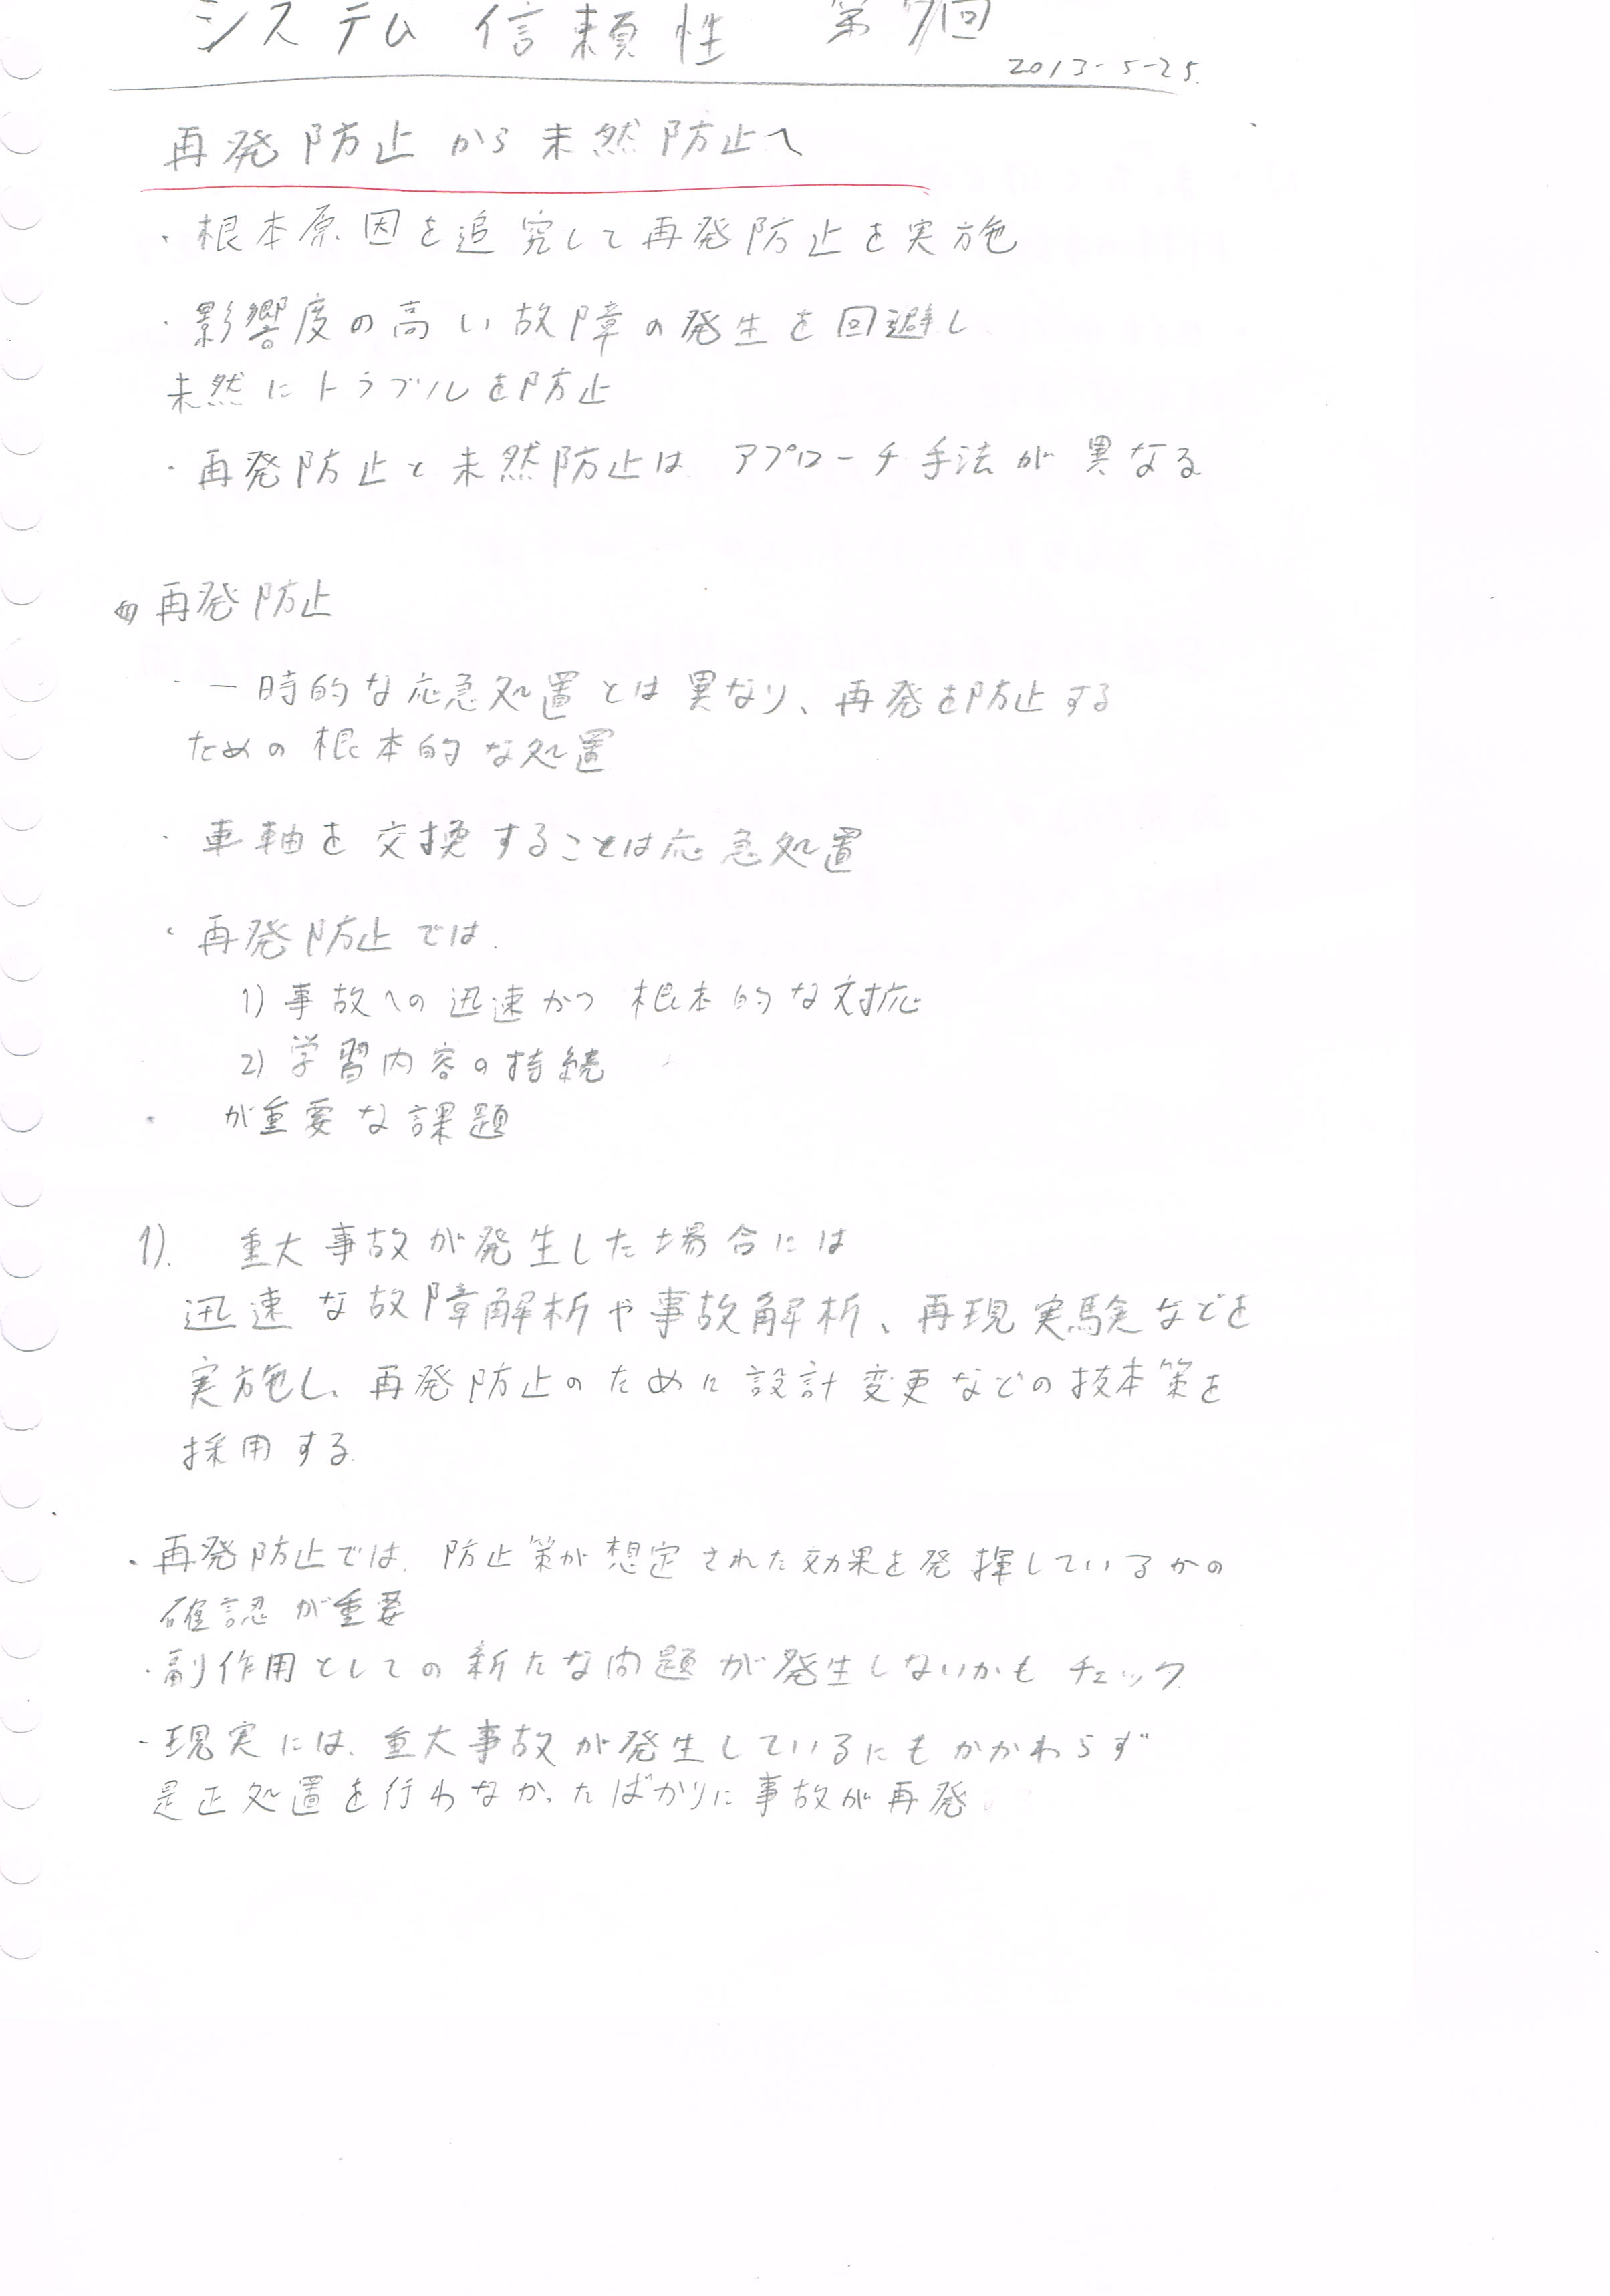 システム信頼性 第7回
2013-5-25.
再発防止から未然防止へ
・根本原因を追究して再発防止を実施
・影響度の高い故障の発生を回避し
未然にトラブルを防止
・再発防止と未然防止は アプローチ手法が異なる
再発防止
・一時的な応急処置とは異なり、再発を防止する
ための根本的な処置
・車軸を交換することは応急処置
・再発防止では、
1) 事故への迅速かつ根本的な対応
2) 学習内容の持続
が重要な課題
1). 重大事故が発生した場合には
迅速な故障解析や事故解析、再現実験などを
実施し、再発防止のために設計変更などの抜本策を
採用する
・再発防止では、防止策が想定された効果を発揮しているかの
確認が重要
・副作用としての新たな問題が発生しないかもチェック
・現実には、重大事故が発生しているにもかかわらず
是正処置を行わなかったばかりに事故が再発